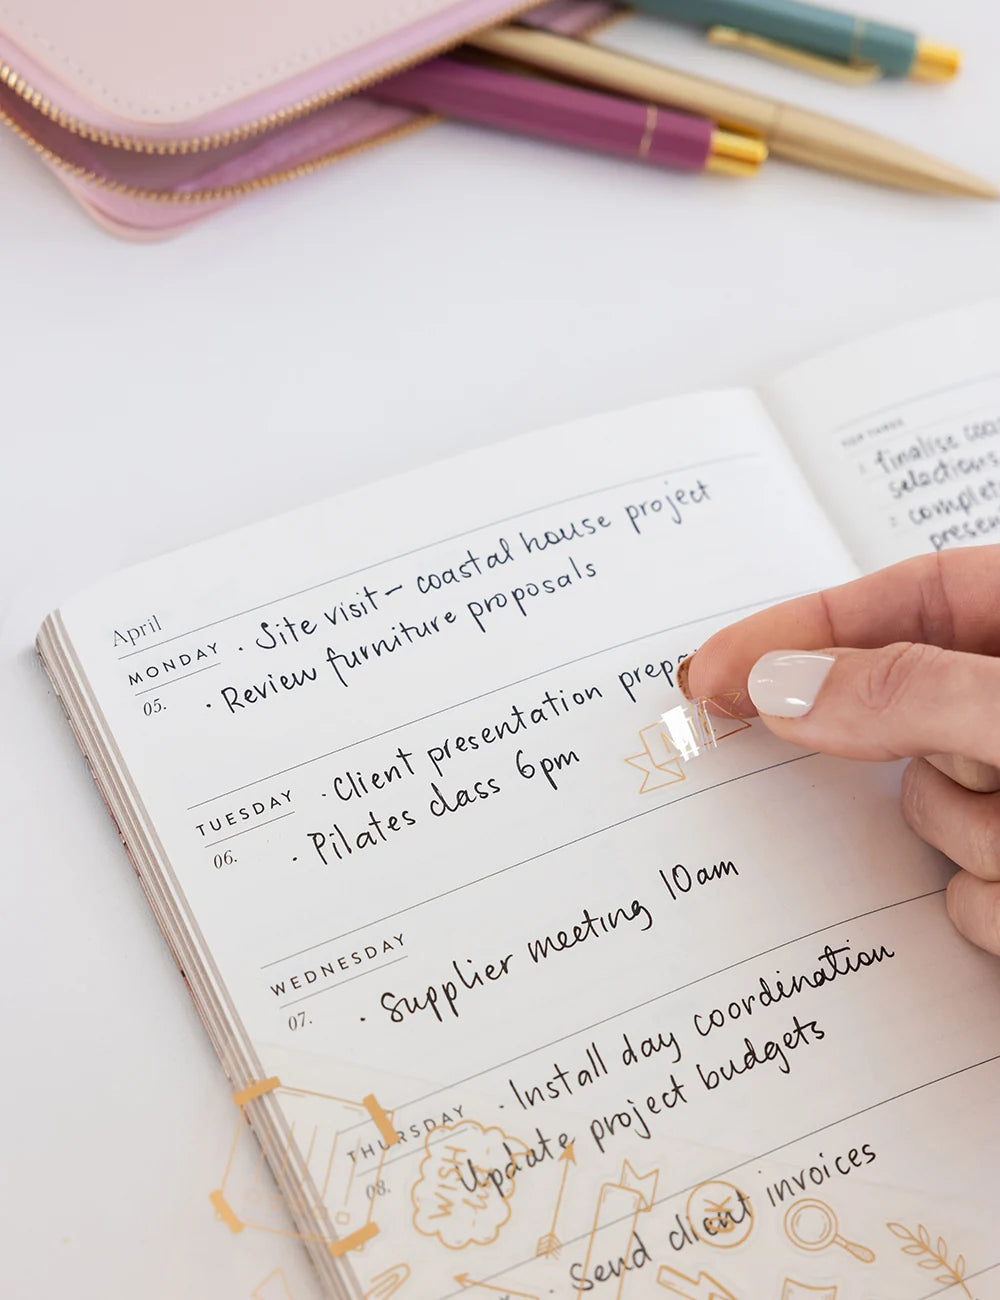 April
MONDAY
05.
· Site visit – coastal house project
· Review furniture proposals
TUESDAY
06.
· Client presentation
· Pilates class 6pm
WEDNESDAY
07.
· Supplier meeting 10am
THURSDAY
08.
· Install day coordination
Update project budgets
· Send client invoices
WISH
OK
TOP THREE
1 finalise
selections
2